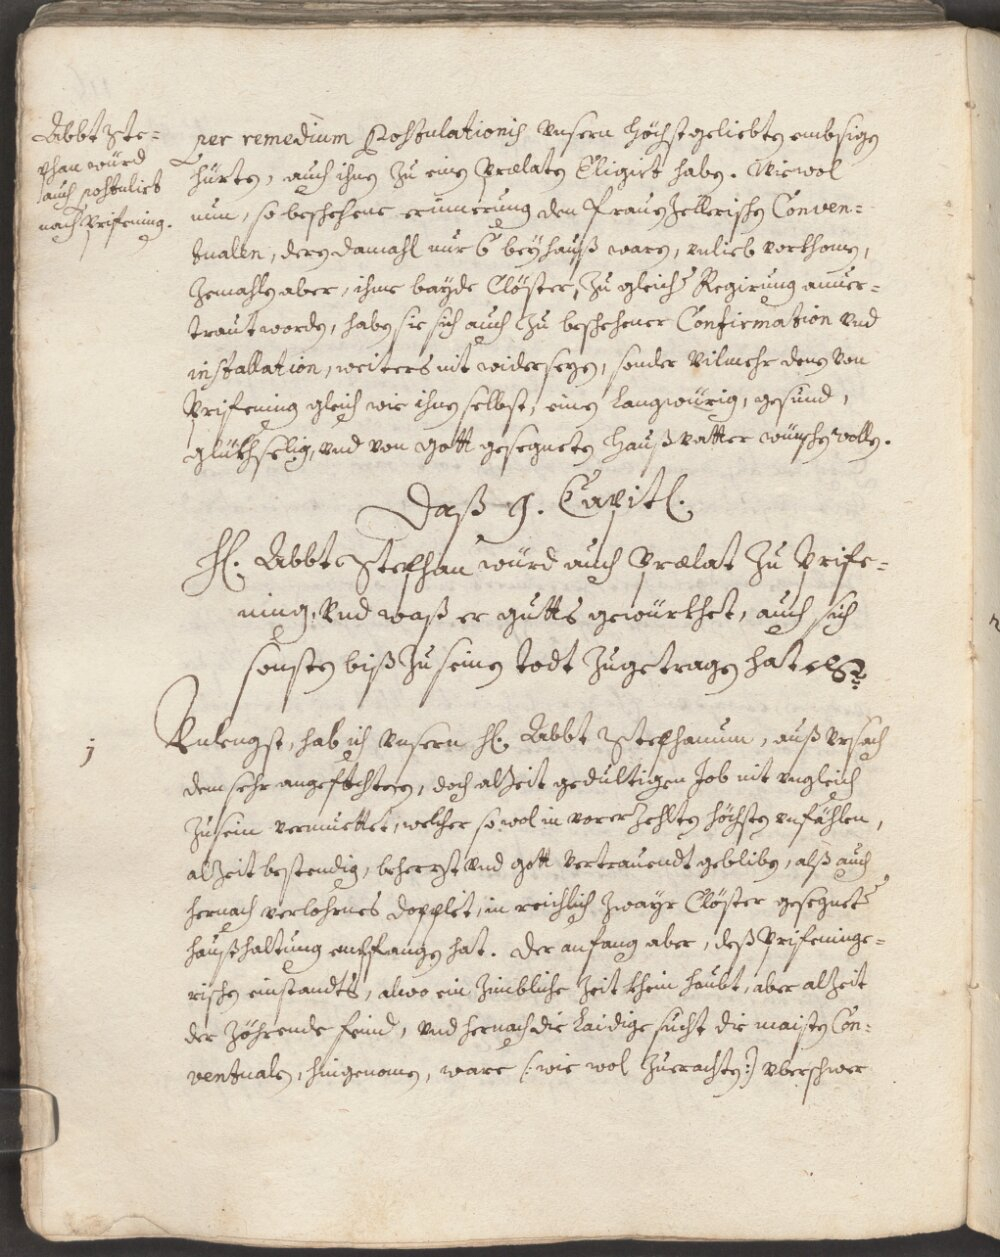 Abbt Ste=
phan würd
auch postulirt
nach Prifening.
per remedium Postulationis vnsern höchstgeliebten embsigen
hürten, auch ihnen zu einen Prælaten Eligirt haben. Wiewol
nun, so beschehene erinnerung den Frauenzellerischen Conven=
tualen, deren damahl nur 6 bey hauß waren, vnlieb vorkhomen,
zemahlen aber, ihme bayde Clöster, zu gleicher Regirung anuer=
traut worden, haben sie sich auch zu beschehener Confirmation vnd
installation, weiters nit widersezen, sonder vilmehr denen von
Prifening gleich wie ihnen selbst, einen langwürig, gesund,
glükhselig, vnd von Gott gesegneten Haußvatter wünschen wollen.
Daß 9. Capitl.
H. Abbt Stephan würd auch Prælat zu Prife=
ning, vnd waß er gutts gewürkhet, auch sich
sonsten biß zu seinen todt zugetragen hat etc.
1
Vnlengst, hab ich vnsern H. Abbt Stephanum, auß vrsach
dem sehr angefochtenen, doch alzeit gedultigen Job nit vngleich
zusein vermuettet, welcher sowol in vorerzehlten höchsten vnfählen,
alzeit bestendig, beherzt vnd Gott vertrauendt gebliben, alß auch
hernach verlohrnes dopplet, in reichlich zwayr Clöster gesegneter
haußhaltung empfangen hat. Der anfang aber, deß Prifeninge=
rischen einstandts, alwo ein zimbliche zeit khein haubt, aber alzeit
der zöhrende feind, vnd hernach die laidige sucht die maisten Con=
ventualen, hingenomen, ware (: wie wol zuerachten:) vberschwer